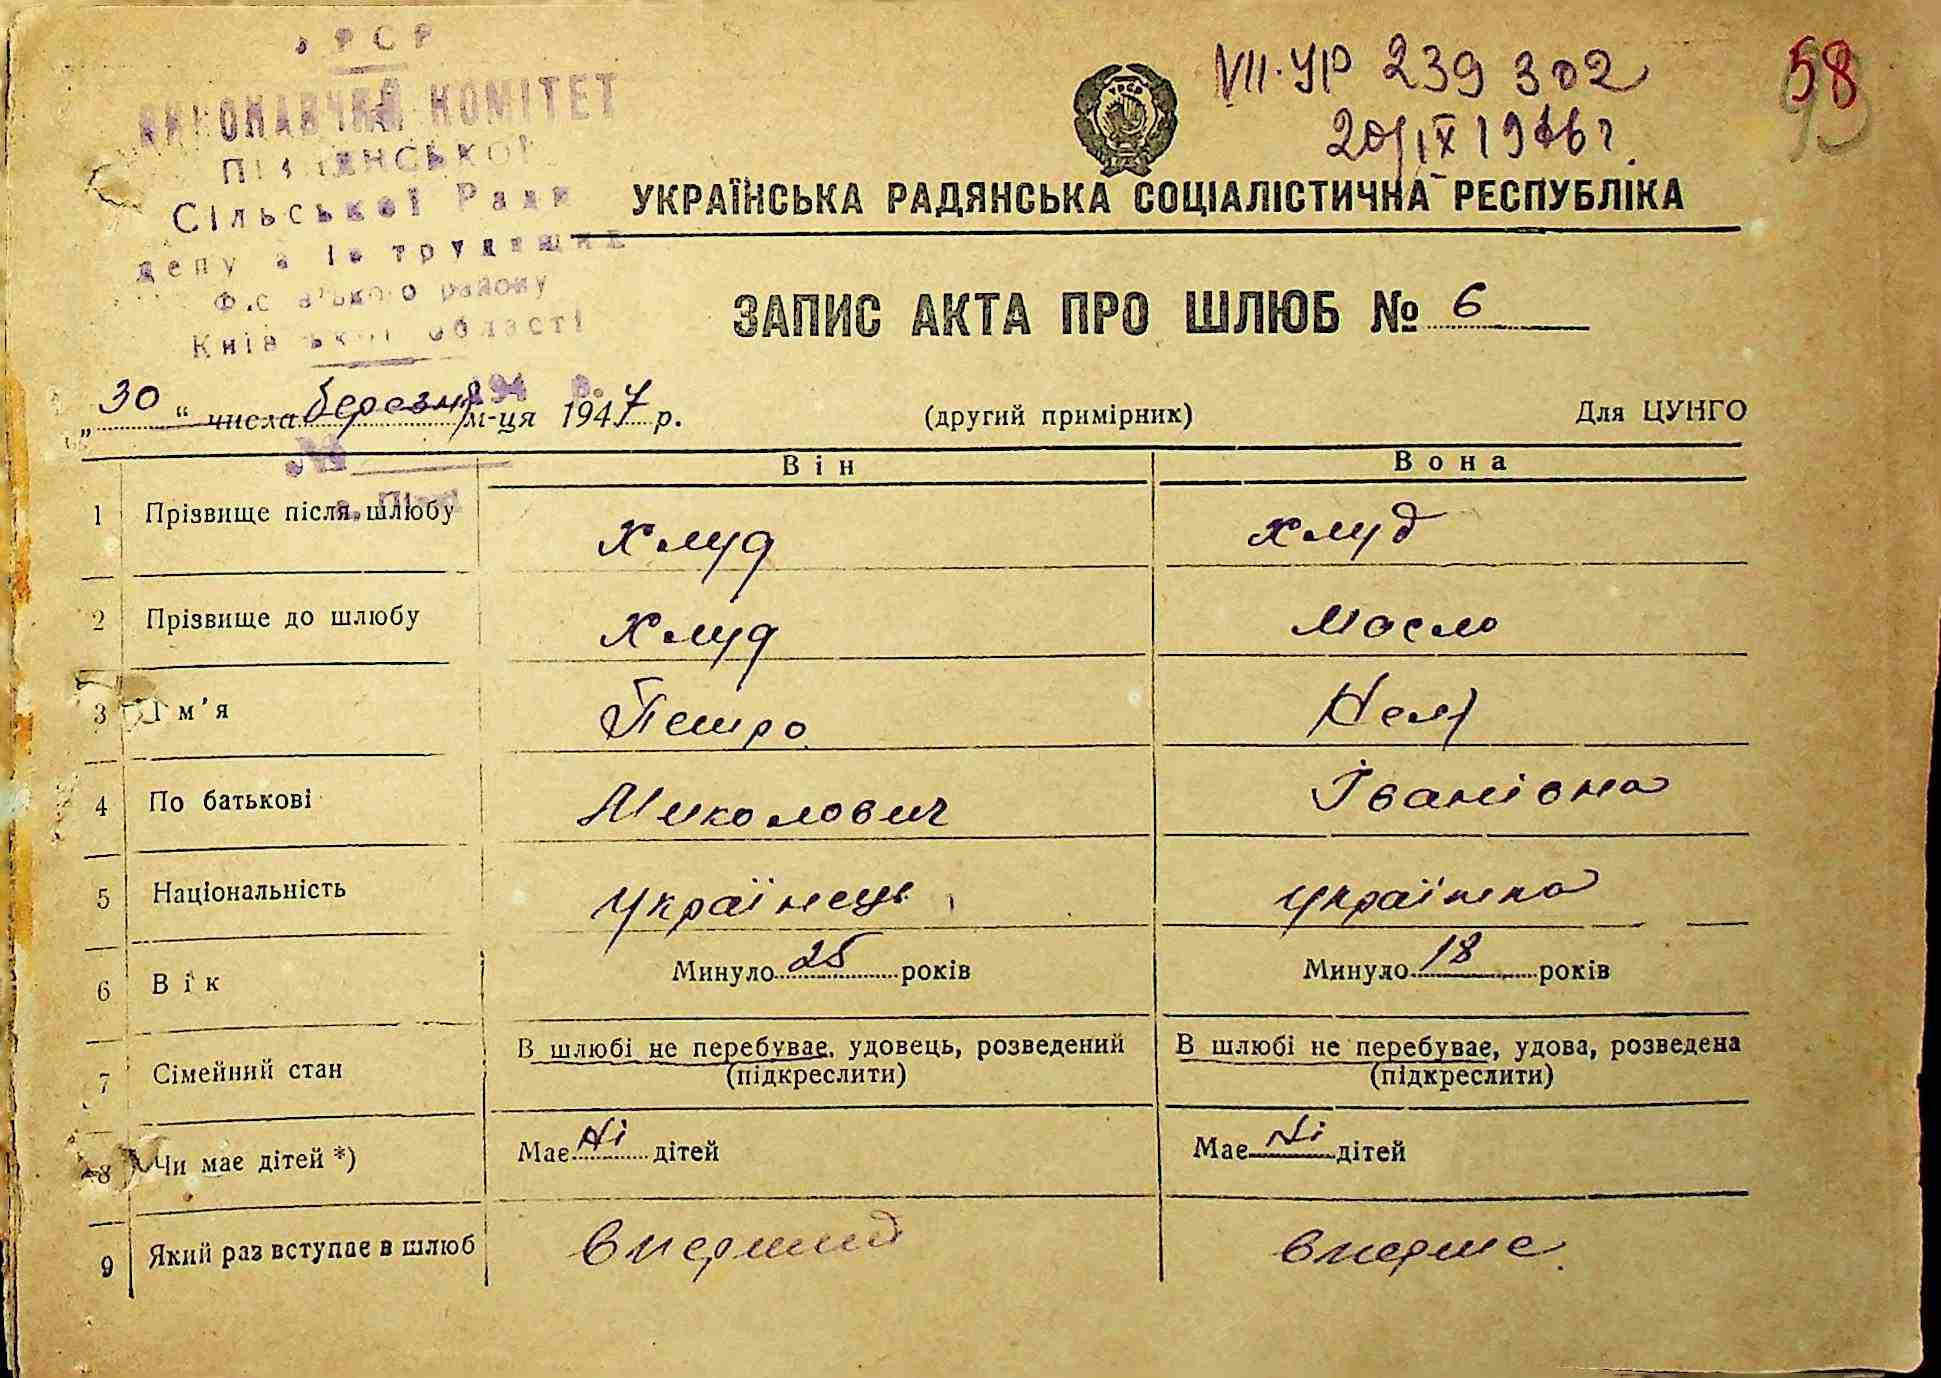 УРСР
ВИКОНАВЧИЙ КОМІТЕТ
Сільської Ради
депутатів трудящих
району
Київської області
VII-УР 239 302
20/IX 1966 г.
58
93
УРСР
УКРАЇНСЬКА РАДЯНСЬКА СОЦІАЛІСТИЧНА РЕСПУБЛІКА
ЗАПИС АКТА ПРО ШЛЮБ № 6
„ 30 “ числа березня м-ця 1947 р.
194 р.
(другий примірник)
Для ЦУНГО
№
Він Вона
1 Прізвище після шлюбу Хлуд Хлуд
2 Прізвище до шлюбу Хлуд Масло
3 Ім’я Петро
4 По батькові Миколович Іванівна
5 Національність українець українка
6 Вік Минуло 25 років Минуло 18 років
7 Сімейний стан В шлюбі не перебуває, удовець, розведений В шлюбі не перебуває, удова, розведена
(підкреслити) (підкреслити)
8 Чи має дітей *) Має Ні дітей Має Ні дітей
9 Який раз вступає в шлюб вперший вперше